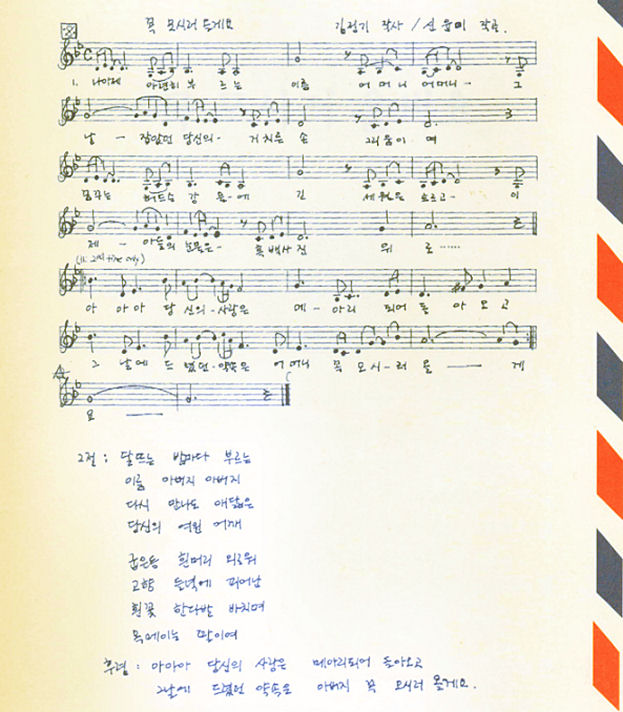 꼭 모시러 올게요 김정기 작사 / 신윤미 작곡.
1. 나직이 아련히 부르는 이름 어머니 어머니 - 그
날 - 잡았던 당신의 - 거치른 손 그리움이 여
꿈꾸는 강물 - 에 긴 세월은 흐르고 - 이
제 - 아들의 눈물은 - 흑백사진 위로 ······
아 아아 당신의 - 사랑은 메 - 아리 되어 돌 아 오 고
그 날에 드렸던 - 약속은 어머니 꼭 모시 - 러 올 —— 게
요 ——
2절 : 달뜨는 밤마다 부르는
이름 아버지 아버지
다시 만나도 애닳은
당신의 여윈 어깨
굽은등 흰머리 외로워
고향 들녘에 피어난
흰꽃 한다발 바치며
목메이는 맘이여
후렴 : 아아아 당신의 사랑은 메아리되어 돌아오고
그날에 드렸던 약속은 아버지 꼭 모시러 올게요.